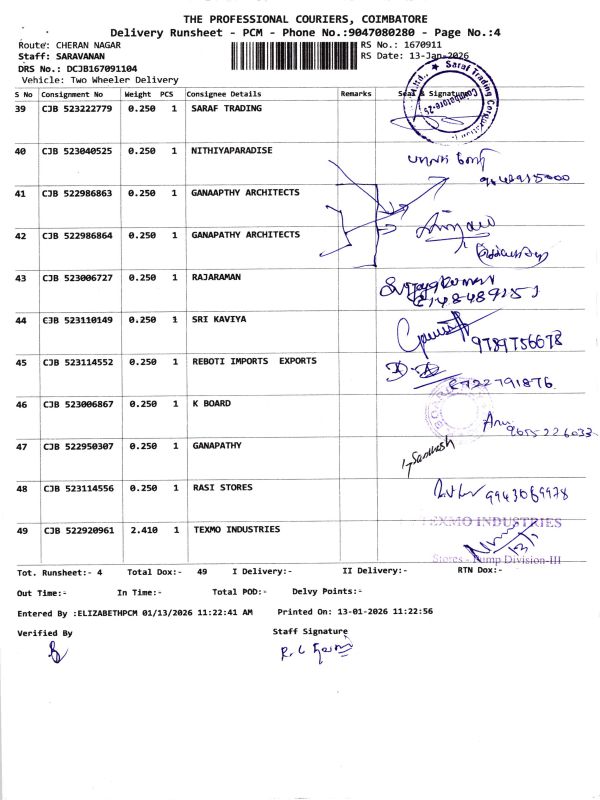 THE PROFESSIONAL COURIERS, COIMBATORE
Delivery Runsheet - PCM - Phone No.:9047080280 - Page No.:4
Route: CHERAN NAGAR RS No.: 1670911
Staff: SARAVANAN RS Date: 13-Jan-2026
DRS No.: DCJB167091104
Vehicle: Two Wheeler Delivery
S No Consignment No Weight PCS Consignee Details Remarks Seal & Signature
39 CJB 523222779 0.250 1 SARAF TRADING
Saraf Trading Corporation
Coimbatore-25
40 CJB 523040525 0.250 1 NITHIYAPARADISE
41 CJB 522986863 0.250 1 GANAAPTHY ARCHITECTS
42 CJB 522986864 0.250 1 GANAPATHY ARCHITECTS
43 CJB 523006727 0.250 1 RAJARAMAN
44 CJB 523110149 0.250 1 SRI KAVIYA
9789756678
45 CJB 523114552 0.250 1 REBOTI IMPORTS EXPORTS
8722791876
46 CJB 523006867 0.250 1 K BOARD
9655226033
47 CJB 522950307 0.250 1 GANAPATHY
48 CJB 523114556 0.250 1 RASI STORES
9943069978
49 CJB 522920961 2.410 1 TEXMO INDUSTRIES
TEXMO INDUSTRIES
Stores - Pump Division-III
Tot. Runsheet:- 4 Total Dox:- 49 I Delivery:- II Delivery:- RTN Dox:-
Out Time:- In Time:- Total POD:- Delvy Points:-
Entered By :ELIZABETHPCM 01/13/2026 11:22:41 AM Printed On: 13-01-2026 11:22:56
Verified By Staff Signature